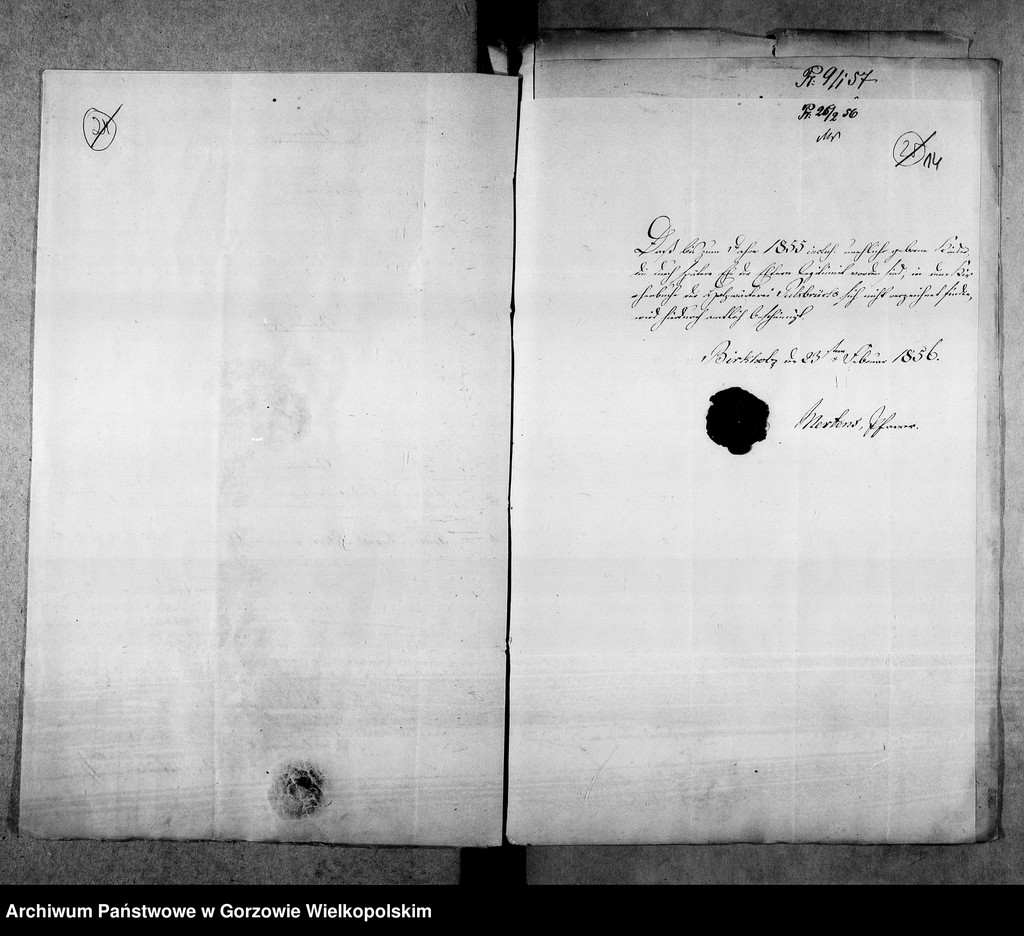 24
Pr. 9/1 57
Pr. 26/2 56
25 14
Daß bis zum Jahre 1855 inclus. unehelich geborne Kinder
die nach spätere Ehe der Eltern legitimirt worden sind, in dem Kir-
chenbuche der Holzwärterei Sulzbruch sich nicht verzeichnet finden,
wird hierdurch amtlich bescheinigt.
Birkholz den 23sten Februar 1856.
Mertens, Pfarrer.
Archiwum Państwowe w Gorzowie Wielkopolskim